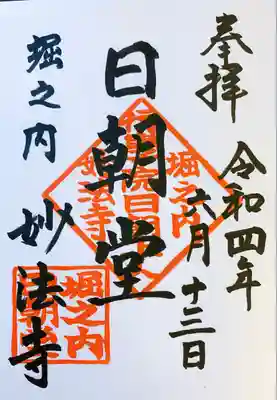 奉拝
令和四年
六月十三日
日朝堂
堀之内
妙法寺
堀之内
妙法寺
堀之内